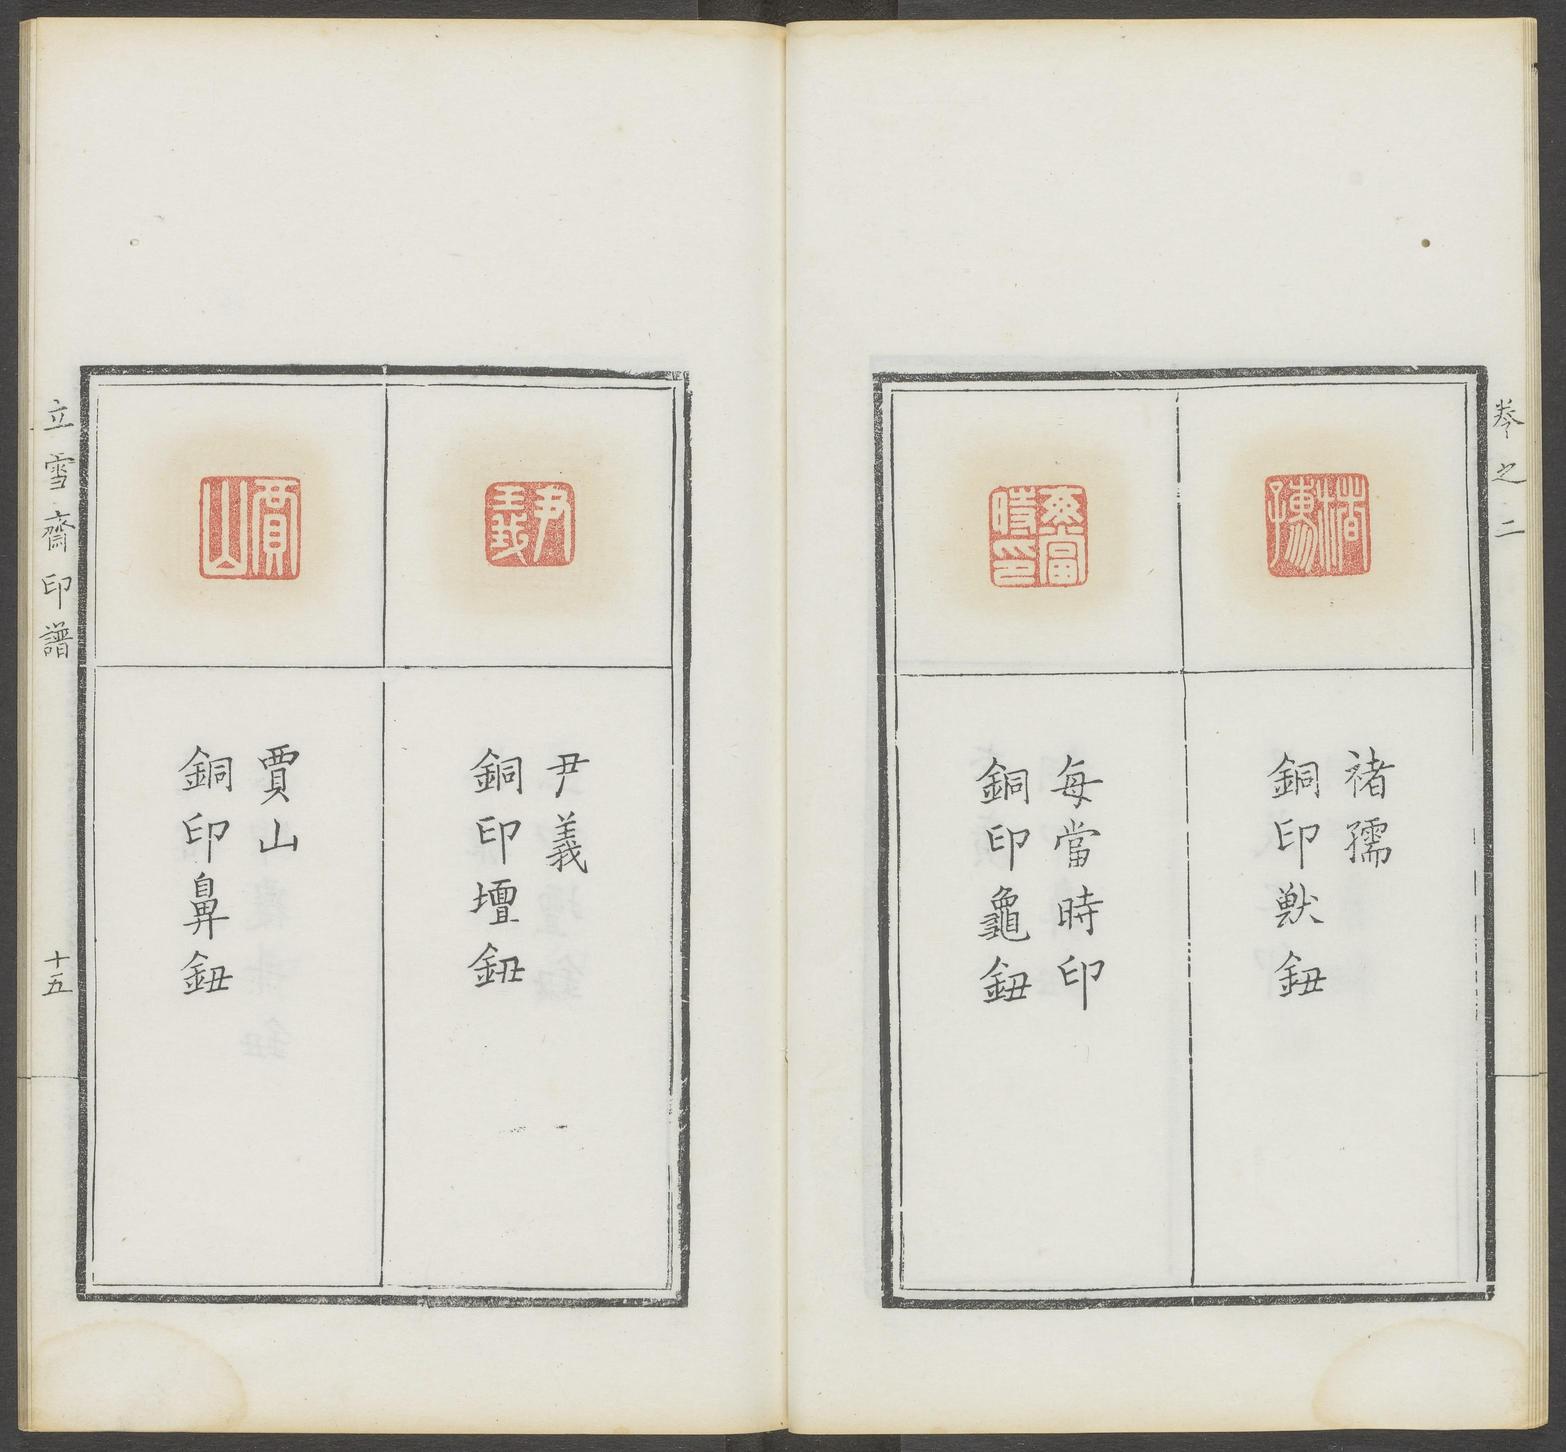 卷之二
褚孺
銅印獸鈕
每當時印
銅印龜鈕
尹義
銅印壇鈕
賈山
銅印鼻鈕
立雪齋印譜
十五